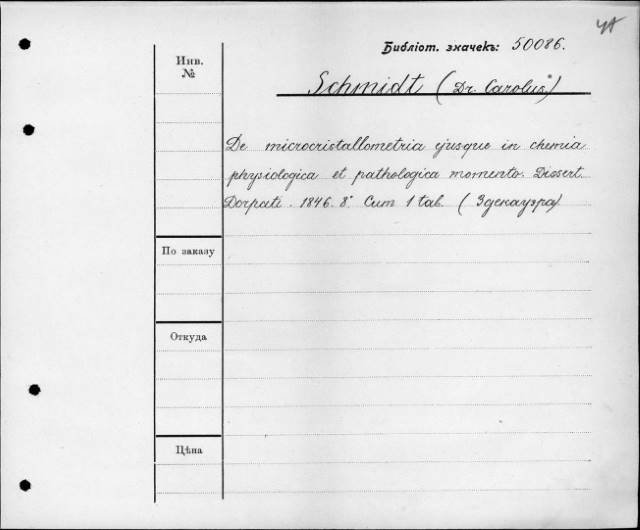 Библіот. значекъ: 50086.
Инв.
№
Schmidt (Dr. Carolus)
De microcristallometria ejusque in chemia
physiologica et pathologica momento. Dissert.
Dorpati. 1846. 8°. Cum 1 tab. (Эдекауэра)
По заказу
Откуда
Цѣна